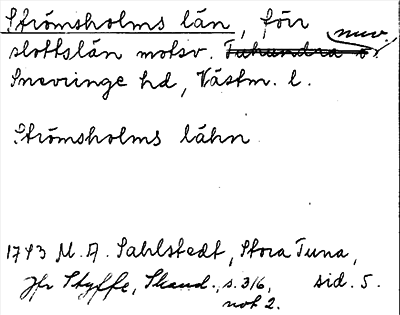 Strömsholms län, förr
slottslän motsv. Tuhundra o. nuv.
Snevringe hd, Västm. l.
Strömsholms lähn
1743 M. A. Sahlstedt, Stora Tuna,
Jfr Styffe, Skand., s. 316, sid. 5.
not 2.